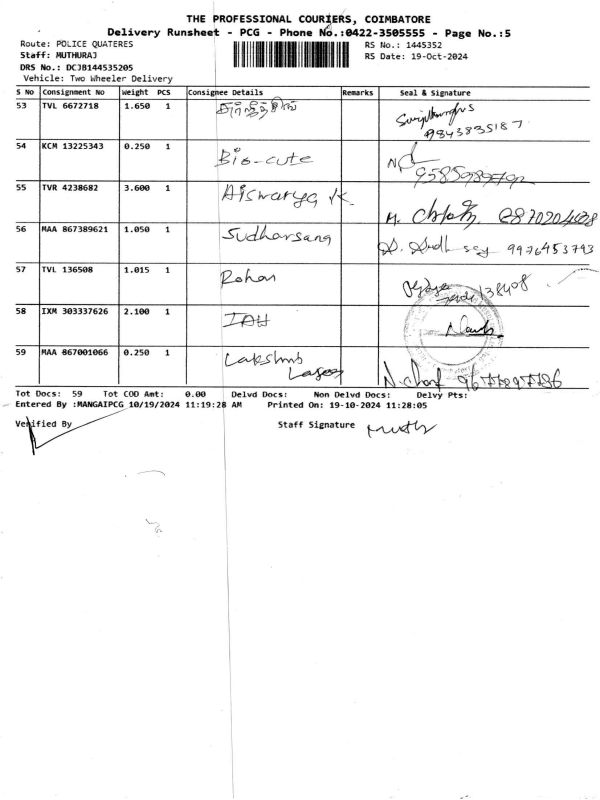 THE PROFESSIONAL COURIERS, COIMBATORE
Delivery Runsheet - PCG - Phone No.:0422-3505555 - Page No.:5
Route: POLICE QUATERES RS No.: 1445352
Staff: MUTHURAJ RS Date: 19-Oct-2024
DRS No.: DCJB144535205
Vehicle: Two Wheeler Delivery
S No Consignment No Weight PCS Consignee Details Remarks Seal & Signature
53 TVL 6672718 1.650 1
9843835187
54 KCM 13225343 0.250 1 Bio-cute
55 TVR 4238682 3.600 1 Aiswarya K.
56 MAA 867389621 1.050 1 Sudharsana 9976453793
57 TVL 136508 1.015 1 Rohan
58 IXM 303337626 2.100 1 IAH
59 MAA 867001066 0.250 1 Lakshmi
Laser
Tot Docs: 59 Tot COD Amt: 0.00 Delvd Docs: Non Delvd Docs: Delvy Pts:
Entered By :MANGAIPCG 10/19/2024 11:19:28 AM Printed On: 19-10-2024 11:28:05
Verified By Staff Signature